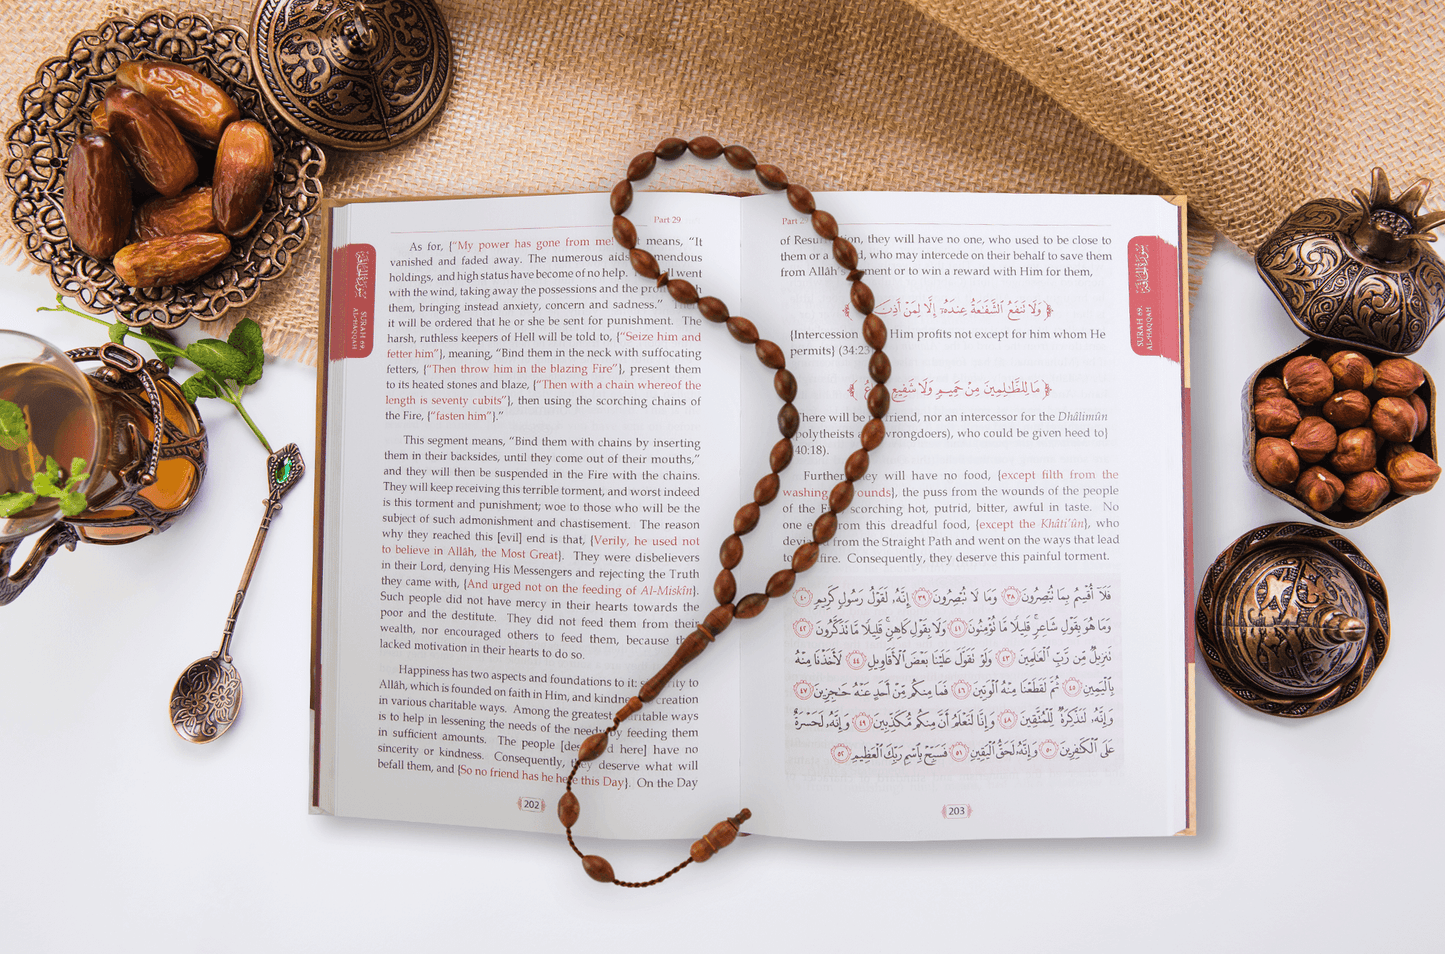 Part 29
As for, {“My power has gone from me! means, “It
vanished and faded away. The numerous aids,
holdings, and high status have become of no help. went
with the wind, taking away the possessions and the
them, bringing instead anxiety, concern and sadness.”
it will be ordered that he or she be sent for punishment. The
harsh, ruthless keepers of Hell will be told to, {“Seize him and
fetter him”}, meaning, “Bind them in the neck with suffocating
fetters, {“Then throw him in the blazing Fire”}, present them
to its heated stones and blaze, {“Then with a chain whereof the
length is seventy cubits”}, then using the scorching chains of
the Fire, {“fasten him”}.”
This segment means, “Bind them with chains by inserting
them in their backsides, until they come out of their mouths,”
and they will then be suspended in the Fire with the chains.
They will keep receiving this terrible torment, and worst indeed
is this torment and punishment; woe to those who will be the
subject of such admonishment and chastisement. The reason
why they reached this [evil] end is that, {Verily, he used not
to believe in Allāh, the Most Great}. They were disbelievers
in their Lord, denying His Messengers and rejecting the Truth
they came with, {And urged not on the feeding of Al-Miskîn}.
Such people did not have mercy in their hearts towards the
poor and the destitute. They did not feed them from their
wealth, nor encouraged others to feed them, because
lacked motivation in their hearts to do so.
Happiness has two aspects and foundations to it: to
Allāh, which is founded on faith in Him, and creation
in various charitable ways. Among the greatest ways
is to help in lessening the needs of the needy by feeding them
in sufficient amounts. The people here] have no
sincerity or kindness. Consequently, they deserve what will
befall them, and {So no friend has he here this Day}. On the Day
202
سورة الحاقة
SURAH 69.
AL-HAQQAH
Part 29
of they will have no one, who used to be close to
them or a who may intercede on their behalf to save them
from Allāh or to win a reward with Him for them,
﴿ وَلَا تَنفَعُ الشَّفَاعَةُ عِندَهُ إِلَّا لِمَنْ أَذِنَ
{Intercession Him profits not except for him whom He
permits} (34:23
﴿ مَا لِلظَّالِمِينَ مِنْ حَمِيمٍ وَلَا شَفِيعٍ ﴾
There will be friend, nor an intercessor for the Dhâlimûn
polytheists wrongdoers), who could be given heed to}
40:18).
they will have no food, {except filth from the
washing wounds}, the puss from the wounds of the people
of the scorching hot, putrid, bitter, awful in taste. No
one from this dreadful food, {except the Khâti’ûn}, who
from the Straight Path and went on the ways that lead
Consequently, they deserve this painful torment.
فَلَا أُقْسِمُ بِمَا تُبْصِرُونَ ٣٨ وَمَا لَا تُبْصِرُونَ ٣٩ إِنَّهُ لَقَوْلُ رَسُولٍ كَرِيمٍ ٤٠
وَمَا هُوَ بِقَوْلِ شَاعِرٍ قَلِيلًا مَّا تُؤْمِنُونَ ٤١ وَلَا بِقَوْلِ كَاهِنٍ قَلِيلًا مَّا تَذَكَّرُونَ ٤٢
تَنزِيلٌ مِّن رَّبِّ الْعَالَمِينَ ٤٣ وَلَوْ تَقَوَّلَ عَلَيْنَا بَعْضَ الْأَقَاوِيلِ ٤٤ لَأَخَذْنَا مِنْهُ
بِالْيَمِينِ ٤٥ ثُمَّ لَقَطَعْنَا مِنْهُ الْوَتِينَ ٤٦ فَمَا مِنكُم مِّنْ أَحَدٍ عَنْهُ حَاجِزِينَ ٤٧
وَإِنَّهُ لَتَذْكِرَةٌ لِّلْمُتَّقِينَ ٤٨ وَإِنَّا لَنَعْلَمُ أَنَّ مِنكُم مُّكَذِّبِينَ ٤٩ وَإِنَّهُ لَحَسْرَةٌ
عَلَى الْكَافِرِينَ ٥٠ وَإِنَّهُ لَحَقُّ الْيَقِينِ ٥١ فَسَبِّحْ بِاسْمِ رَبِّكَ الْعَظِيمِ ٥٢
203
سورة الحاقة
SURAH 69.
AL-HAQQAH